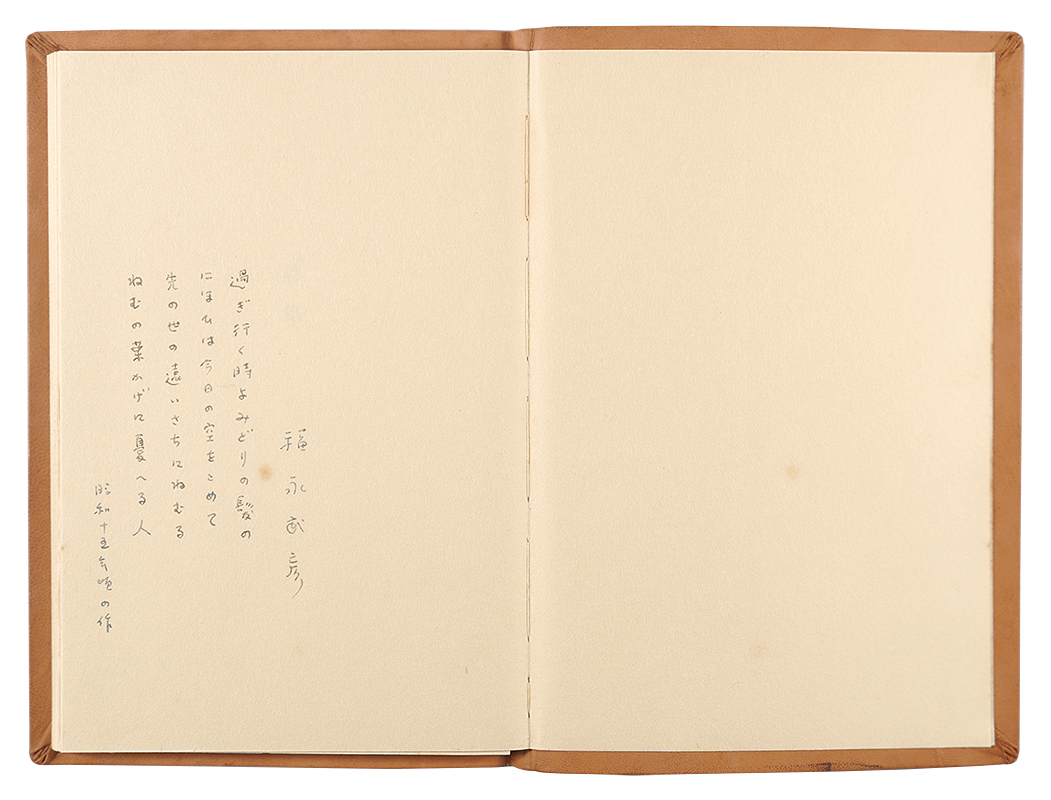 福永武彦
過ぎ行く時よみどりの髪の
にほひは今日の空をこめて
先の世の遠いさちにねむる
ねむの葉かげに憂へる人
昭和十五年頃の作